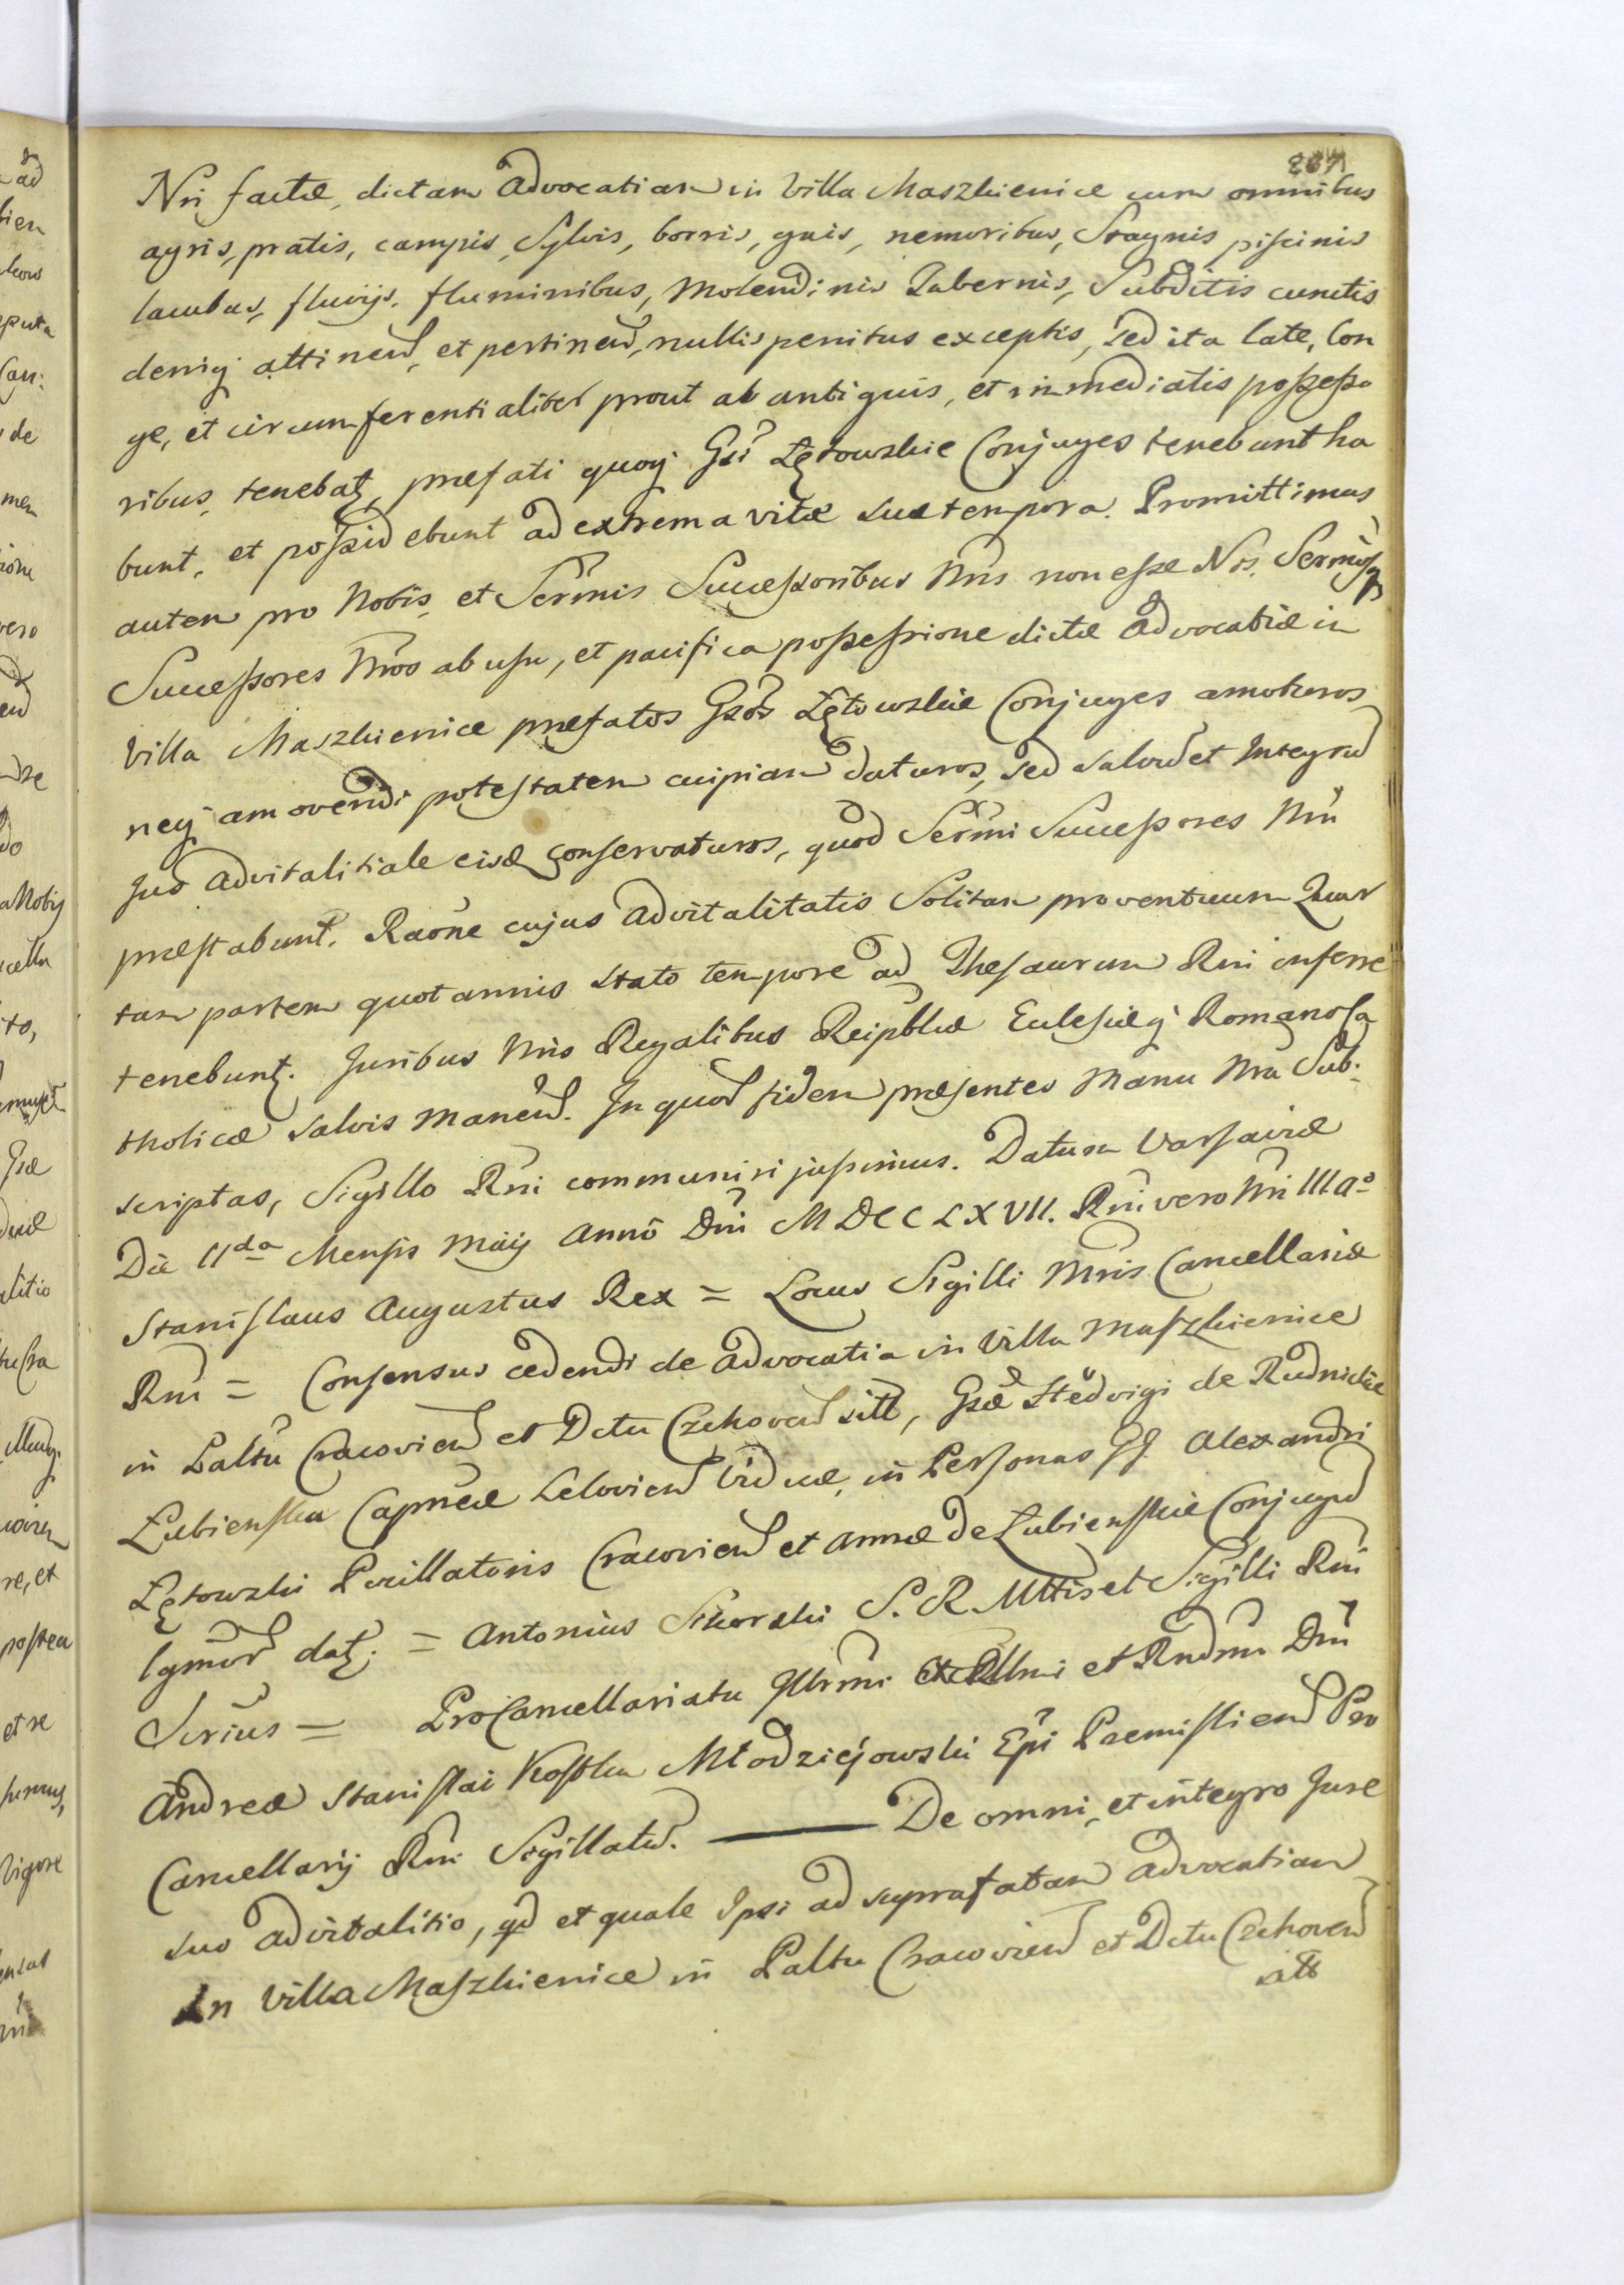 Nri factæ, dictam Advocatiam in Villa Maszkienice cum omnibus
agris, pratis, campis, Sylvis, borris, gais, nemoribus, Stagnis piscinis
lacubus, fluvijs, fluminibus, Molendinis Tabernis, Subditis cunctis
deniq attinen, et pertinen, nullis penitus exceptis, sed ita late, lon
ge, et circumferentialiter prout ab antiquis, et immediatis possesso
ribus, tenebat, præfati quoq Gsi Łętowskie Conjuges tenebunt ha
bunt, et possidebunt ad extrema vitæ suæ tempora. Promittimus
autem pro Nobis, et Sermis Successoribus Nris non esse Nos, Sermosq
Successores Nros ab usu, et pacifica possessione dictæ Advocatiæ in
Villa Maszkienice præfatos Gsos Łętowskie Conjuges amoturos
neq amovendi potestatem cuipiam daturos, sed salvum et Integrum
Jus Advitalitiale eisd conservaturos, quod Sermi Successores Nri
præstabunt. Raone cujus Advitalitatis Solitam proventuum Quar
tam partem quotannis stato tempore ad Thesaurum Rni inferre
tenebunt. Juribus Nris Regalibus Reipblcæ Ecclesiæq Romano Ca
tholicæ salvis manen. In quor fidem præsentes Manu Nra Sub:
scriptas, Sigillo Rni communiri jussimus. Datum Varsaviæ
Die IIda Mensis Maij Anno Dni MDCCLXVII. Rni vero Nri III Ao
Stanislaus Augustus Rex = Locus Sigilli Mris Cancellariæ
Rni = Consensus cedendi de Advocatia in Villa Maszkienice
in Paltu Cracovien et Dctu Czchovien sitt, Gsæ Hedvigi de Rudnickie
Łubienska Capneæ Leloviens Viduæ, in Personas GG. Alexandri
Łętowski Pocillatoris Cracovien et Annæ de Łubienskie Conjugum
lgmor dat. = Antonius Sikorski S. R. Mttis et Sigilli Rni
Scrius = ProCancellariatu Illrmi Excllmi et Rndmi Dni
Andreæ Stanislai Kostka Młodziejowski Epi Premislien Pro
Cancellarij Rni Sigillatum. — De omni, et integro Jure
suo advitalitio, qd et quale Ipsi ad suprafatam advocatiam
In Villa Maszkienice in Paltu Cracovien et Dctu Czchovien
sitt